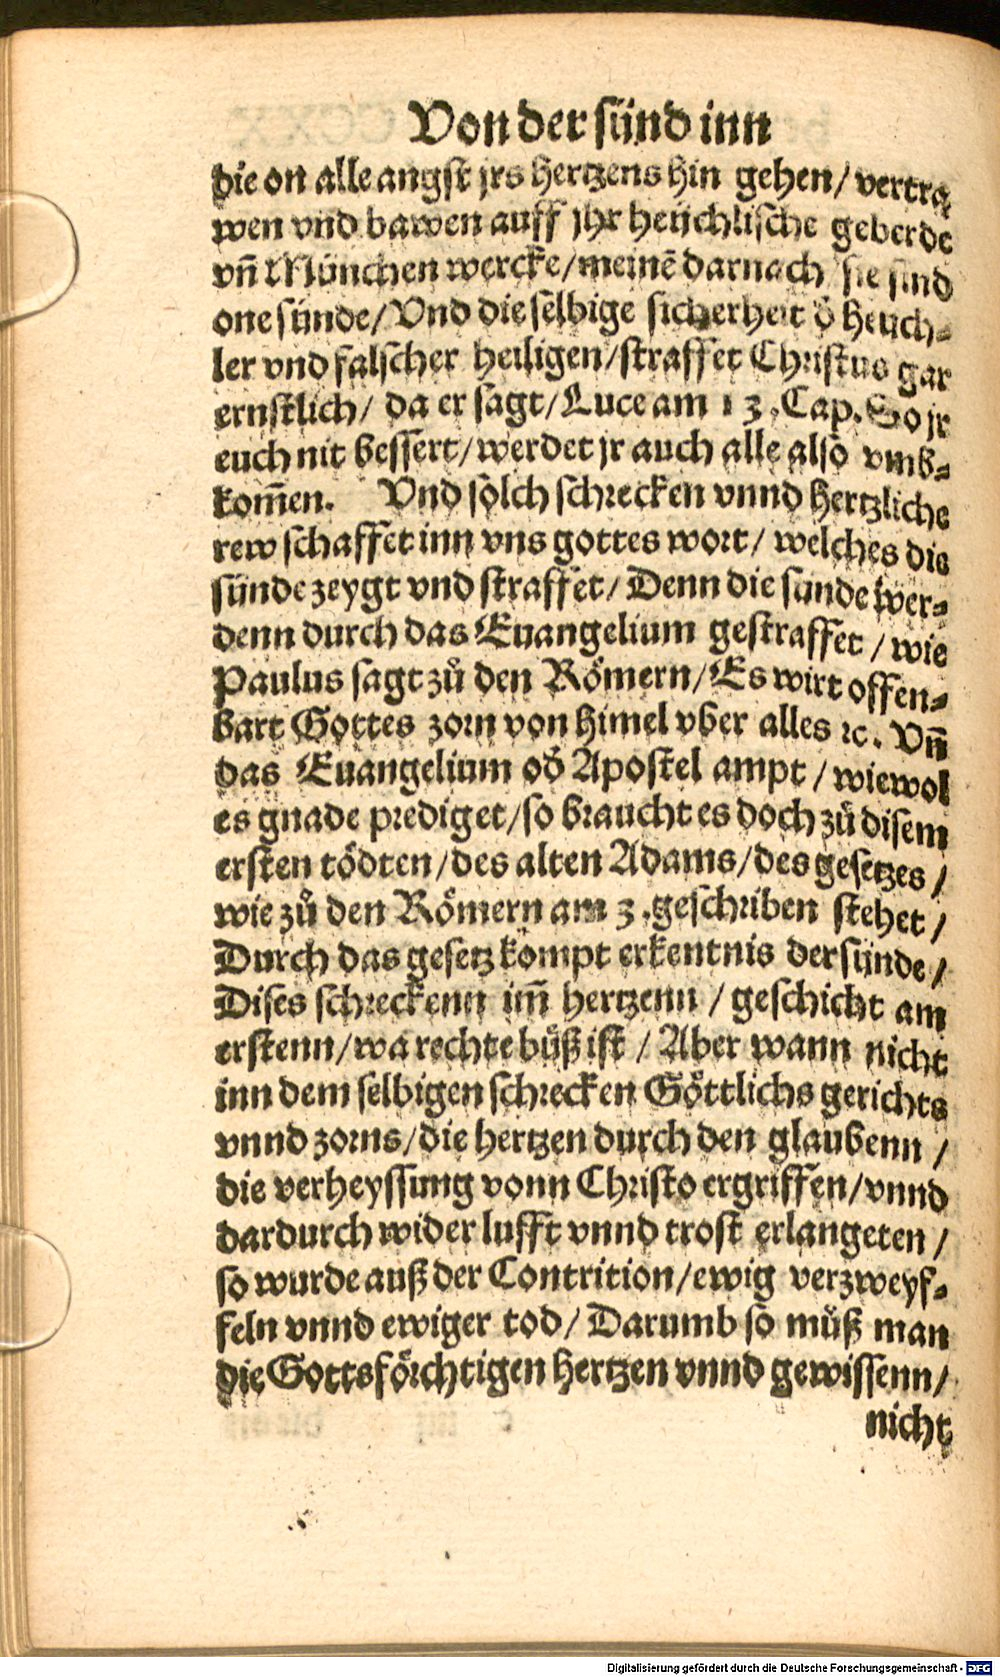 Von der sünd inn
die on alle angst jrs hertzens hin gehen/ vertra
wen vnd bawen auff jhr heüchlische geberde
vñ München wercke/meinẽ darnach sie sind
one sünde/Vnd die selbige sicherheit d̕ heuch-
ler vnd falscher heiligen/straffet Christus gar
ernstlich/ da er sagt/Luce am 13.Cap.So jr
euch nit bessert/werdet jr auch alle also vmb-
kom̃en. Vnd solch schrecken vnnd hertzliche
rew schaffet inn vns gottes wort/ welches die
sünde zeygt vnd straffet/Denn die sunde wer-
denn durch das Euangelium gestraffet/wie
Paulus sagt zů den Römern/Es wirt offen-
bart Gottes zorn von himel vber alles ꝛc. Vñ
das Euangelium od̕ Apostel ampt/wiewol
es gnade prediget/so braucht es doch zů disem
ersten tödten/des alten Adams/des gesetzes/
wie zů den Römern am 3.geschriben stehet/
Durch das gesetz kompt erkentnis der sünde/
Dises schreckenn im̃ hertzenn/geschicht am
erstenn/wa rechte bůß ist/Aber wann nicht
inn dem selbigen schrecken Göttlichs gerichts
vnnd zorns/die hertzen durch den glaubenn/
die verheyssung vonn Christo ergriffen/vnnd
dardurch wider lufft vnnd trost erlangeten/
so wurde auß der Contrition/ewig verzweyf-
feln vnnd ewiger tod/Darumb so můß man
die Gottsförchtigen hertzen vnnd gewissenn/
nicht
Digitalisierung gefördert durch die Deutsche Forschungsgemeinschaft - DFG